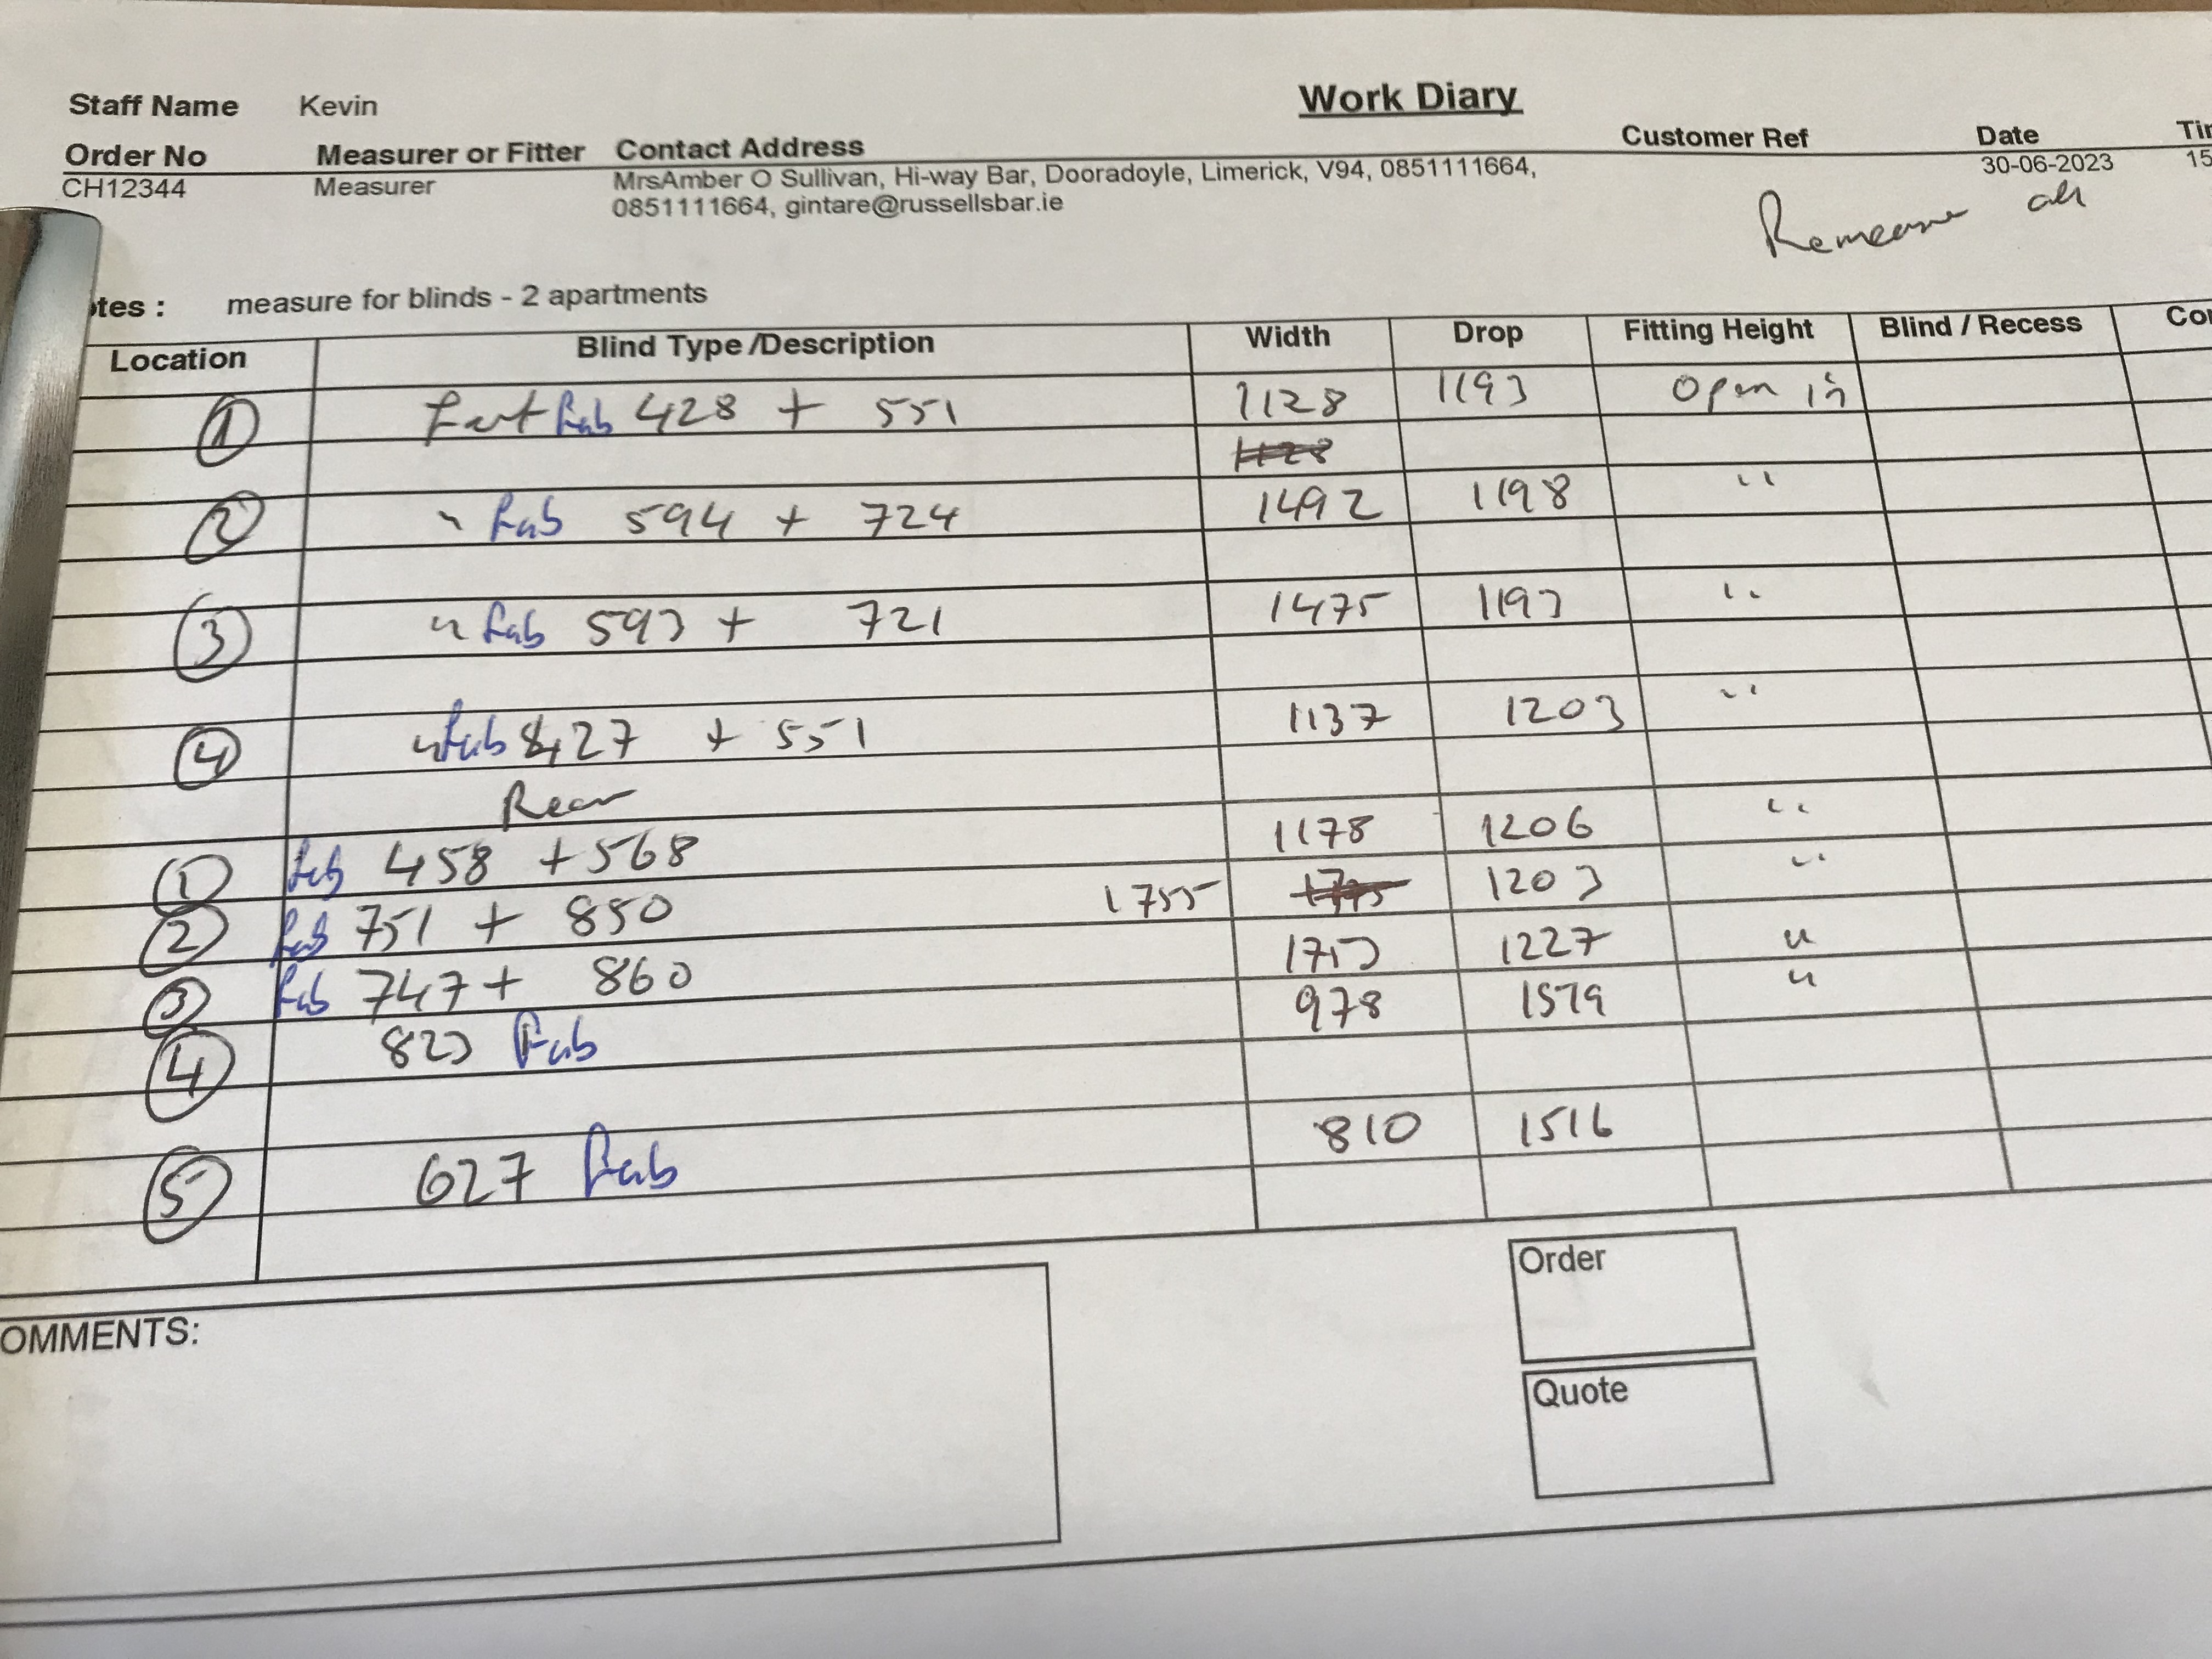 Work Diary
Staff Name Kevin
Order No Measurer or Fitter Contact Address Customer Ref Date
CH12344 Measurer MrsAmber O Sullivan, Hi-way Bar, Dooradoyle, Limerick, V94, 0851111664, 30-06-2023 15
0851111664, gintare@russellsbar.ie
Remeasure all
measure for blinds - 2 apartments
Location Blind Type /Description Width Drop Fitting Height Blind / Recess
1 Fab 428 + 551 1128 1193 Open in
1128
2 " Fab 594 + 724 1492 1198 "
3 " Fab 593 + 721 1475 1193 "
4 " Fab 427 + 551 1137 1203 "
Rear
1 Fab 458 + 568 1178 1206 "
2 Fab 751 + 850 1755 1203 "
3 Fab 747 + 860 1753 1227 "
4 823 Fab 978 1579 "
5 627 Fab 810 1516
Order
OMMENTS:
Quote